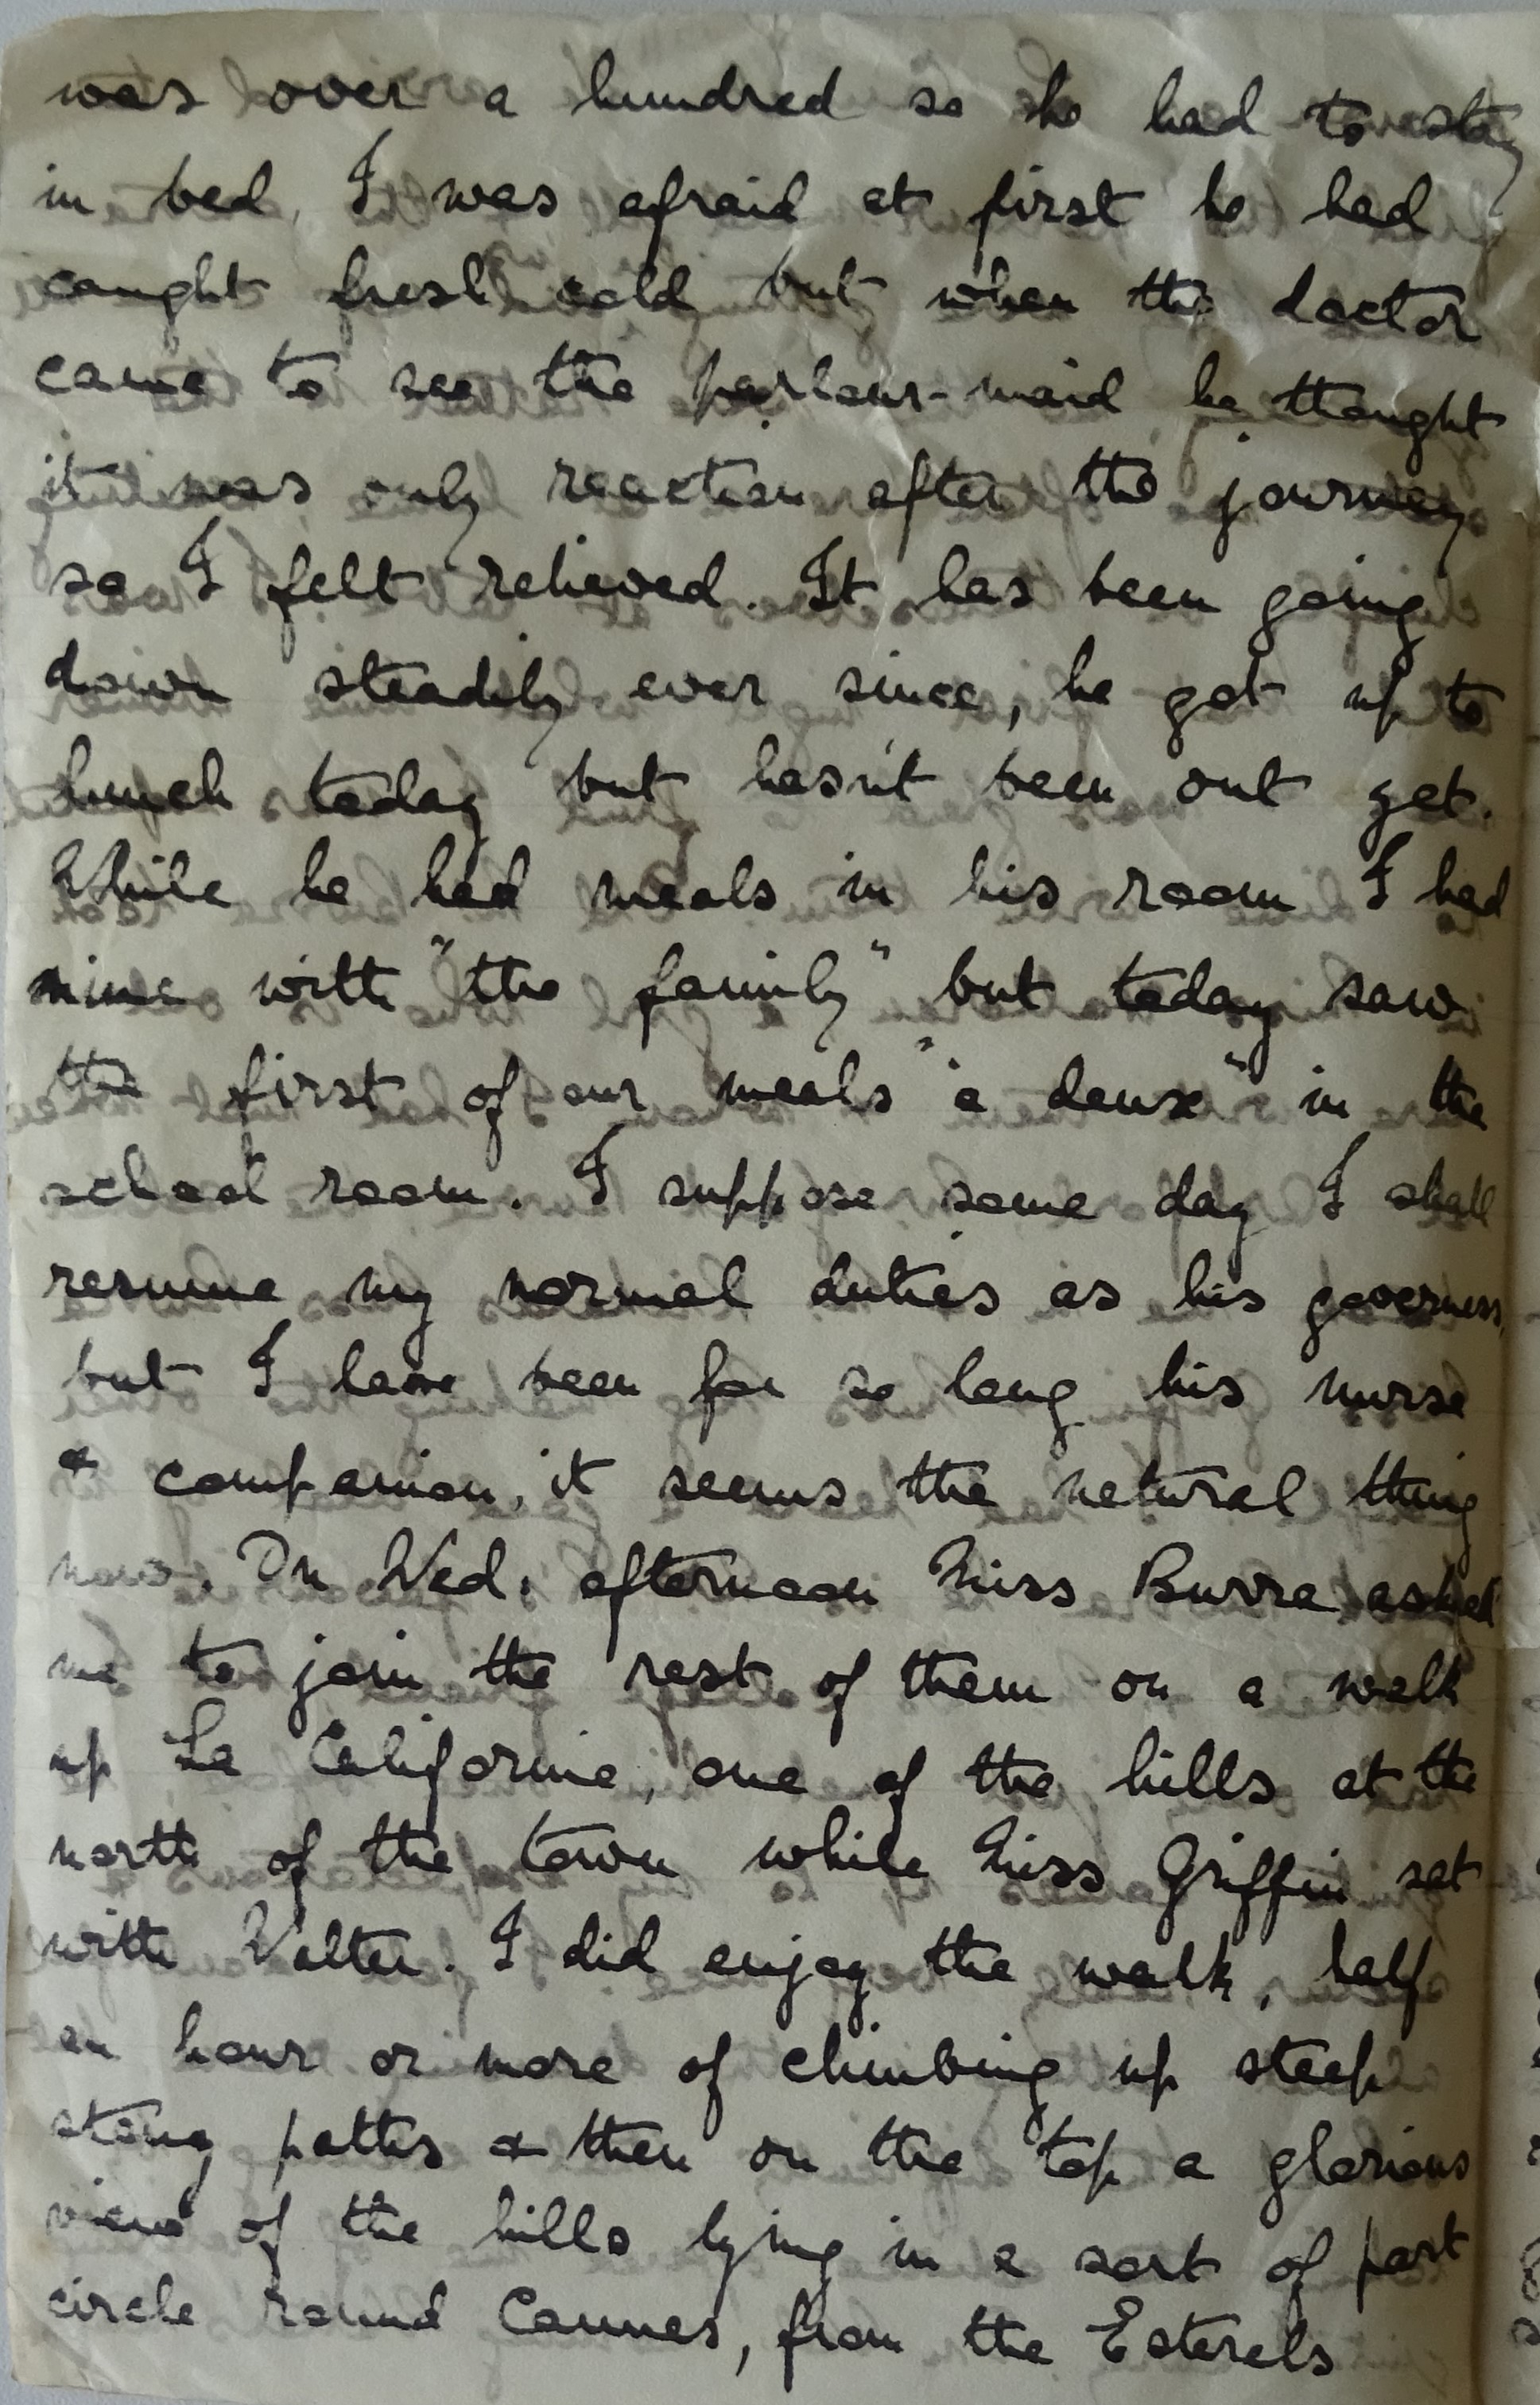 was over a hundred so he had to stay
in bed. I was afraid at first he had
caught fresh cold but when the doctor
came to see the parlour-maid he thought
it was only reaction after the journey
so I felt relieved. It has been going
down steadily ever since, he got up to
lunch today but hasn't been out yet.
While he had meals in his room I had
mine with "the family" but today saw
the first of our meals "a deux" in the
school room. I suppose some day I shall
resume my normal duties as his governess,
but I have been for so long his nurse
& companion, it seems the natural thing
now. On Wed. afternoon Miss Burra asked
me to join the rest of them on a walk
up La Californie, one of the hills at the
north of the town while Miss Griffin sat
with Walter. I did enjoy the walk, half
an hour or more of climbing up steep
stony paths & then on the top a glorious
view of the hills lying in a sort of part
circle round Cannes, from the Esterels